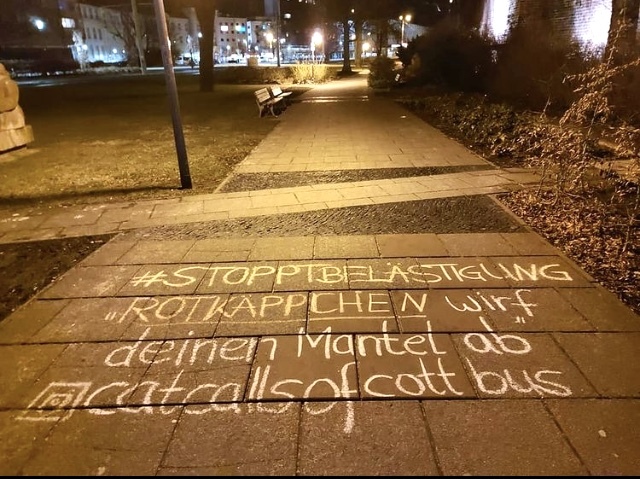 #STOPPTBELÄSTIGUNG
„ROTKÄPPCHEN wirf
deinen Mantel ab"
@catcallsofcottbus